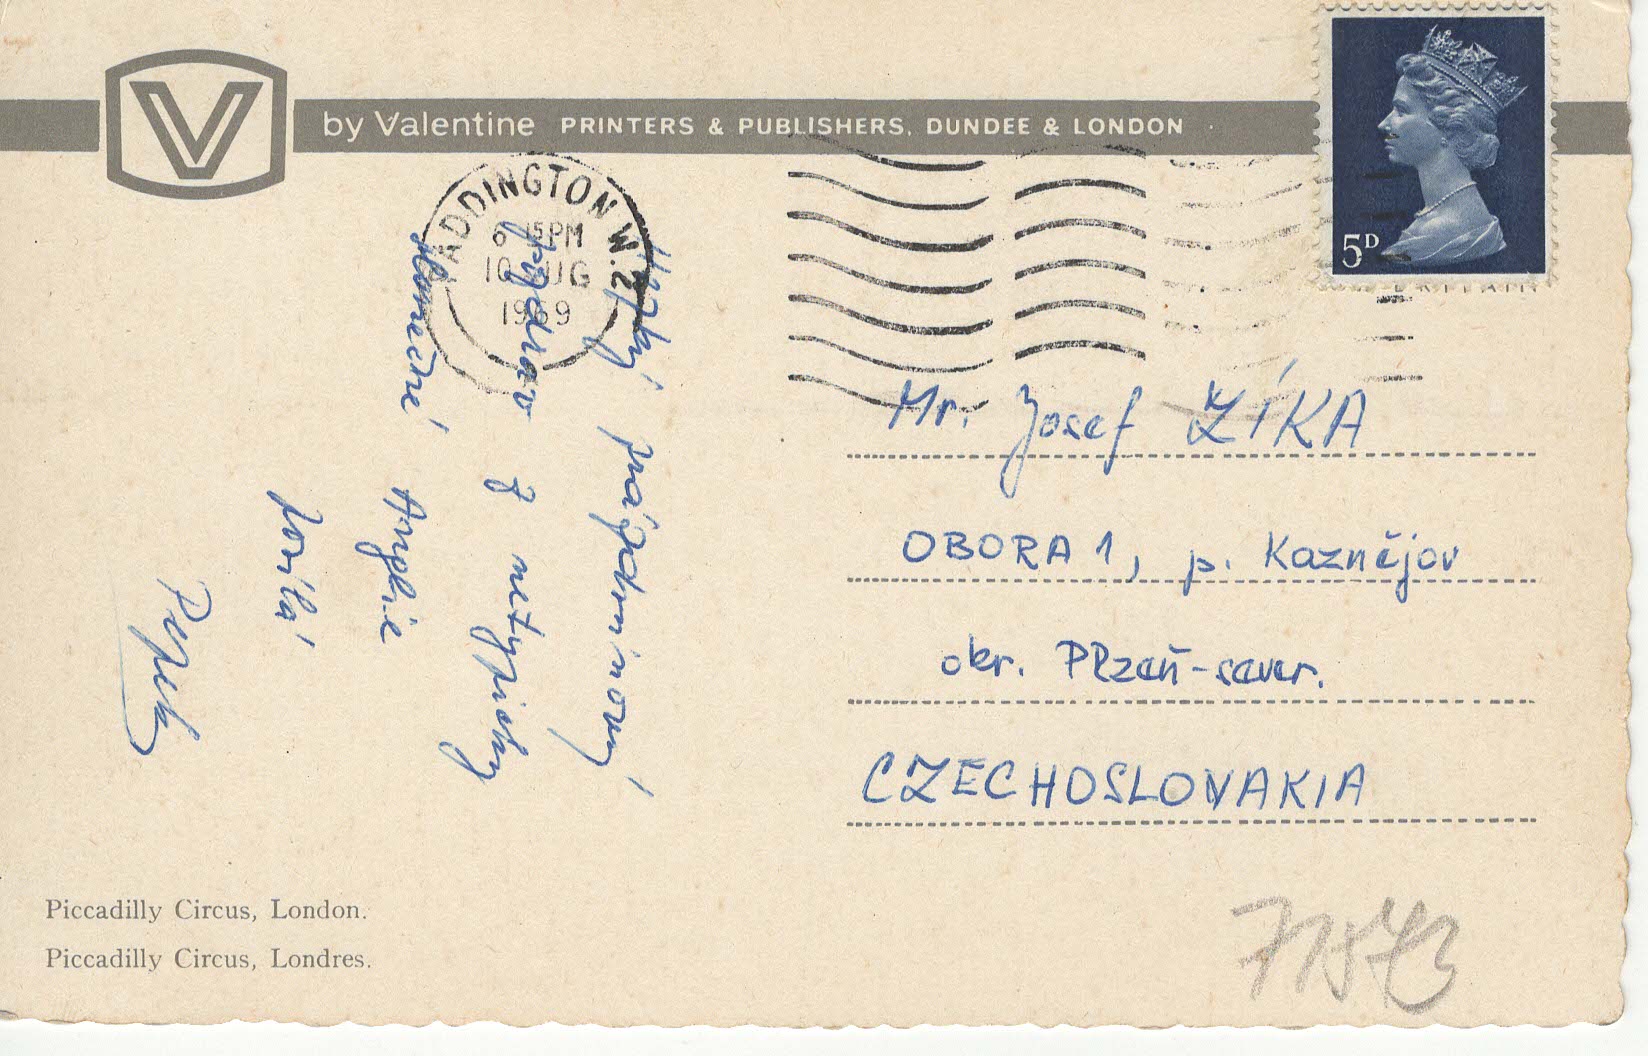 V
by Valentine PRINTERS & PUBLISHERS, DUNDEE & LONDON
PADDINGTON W.2
6 15PM
10 AUG
1969
5D
BRITAIN
prázdninový
pozdrav z netypicky
slunečné Anglie
posílá
Pepek
Mr. Josef ZÍKA
OBORA 1, p. Kaznějov
okr. Plzeň-sever.
CZECHOSLOVAKIA
Piccadilly Circus, London.
Piccadilly Circus, Londres.